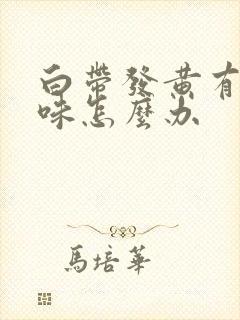 白帶發黃有
味怎麼办
馬培華